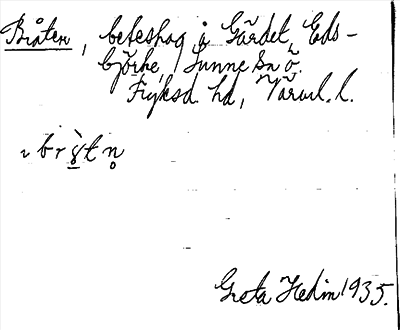 Bråten, beteshag å Gårdet, Eds-
björke, Sunne sn ö.
Fryksd. hd, Värml. l.
Greta Hedin 1935.